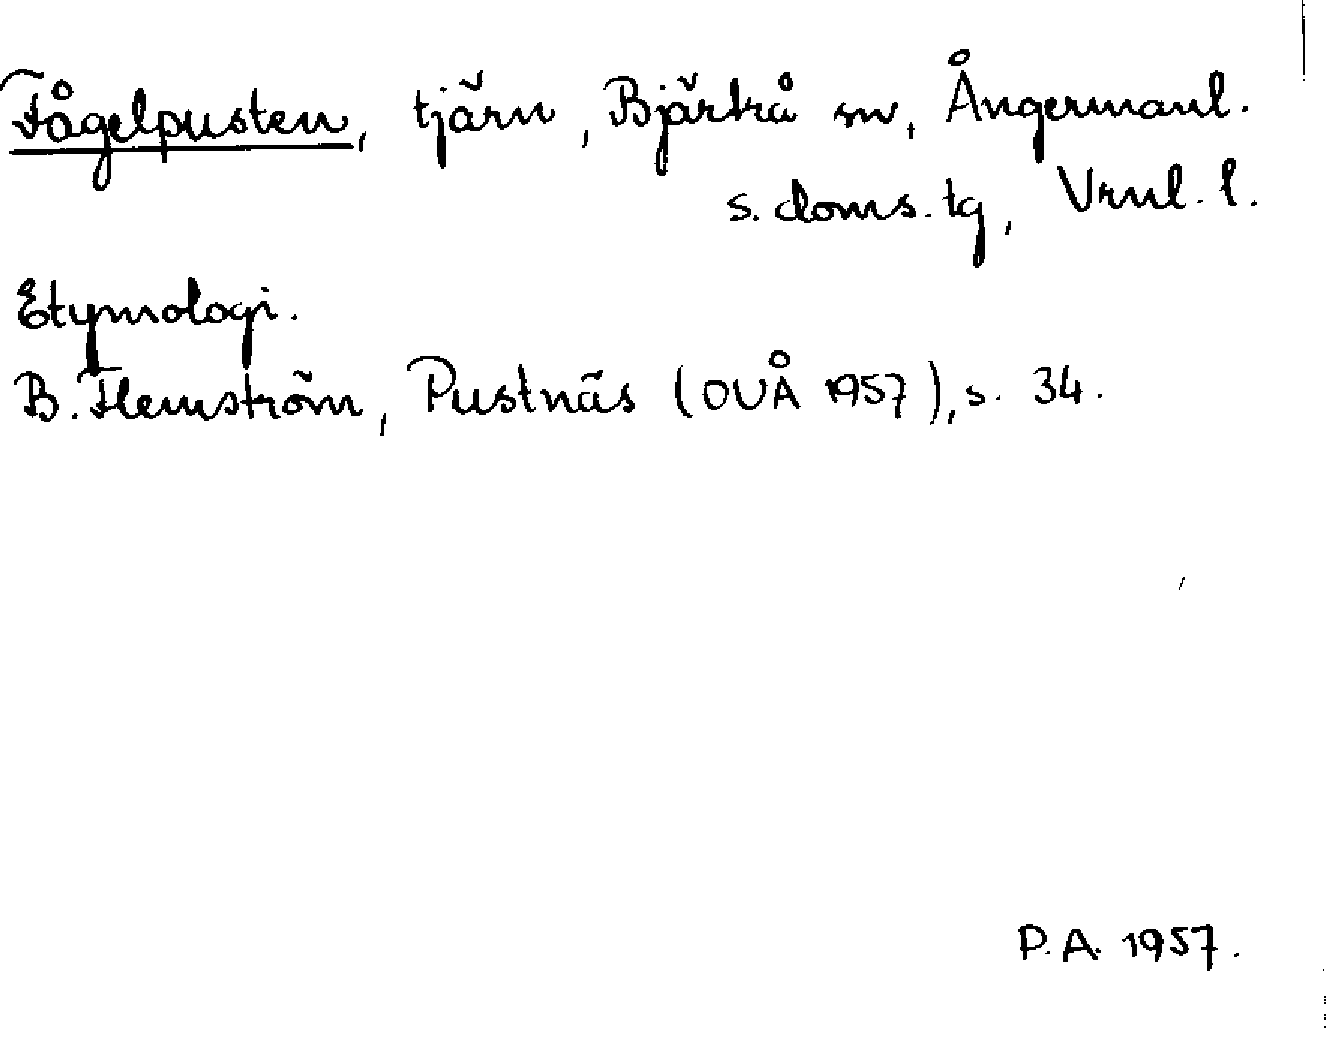 Fågelpusten, tjärn, Bjärtrå sn, Ångermanl.
s. doms. tg, Vrnl. l.
Etymologi.
B. Flemström, Pustnäs (OUÅ 1957), s. 34.
P.A. 1957.